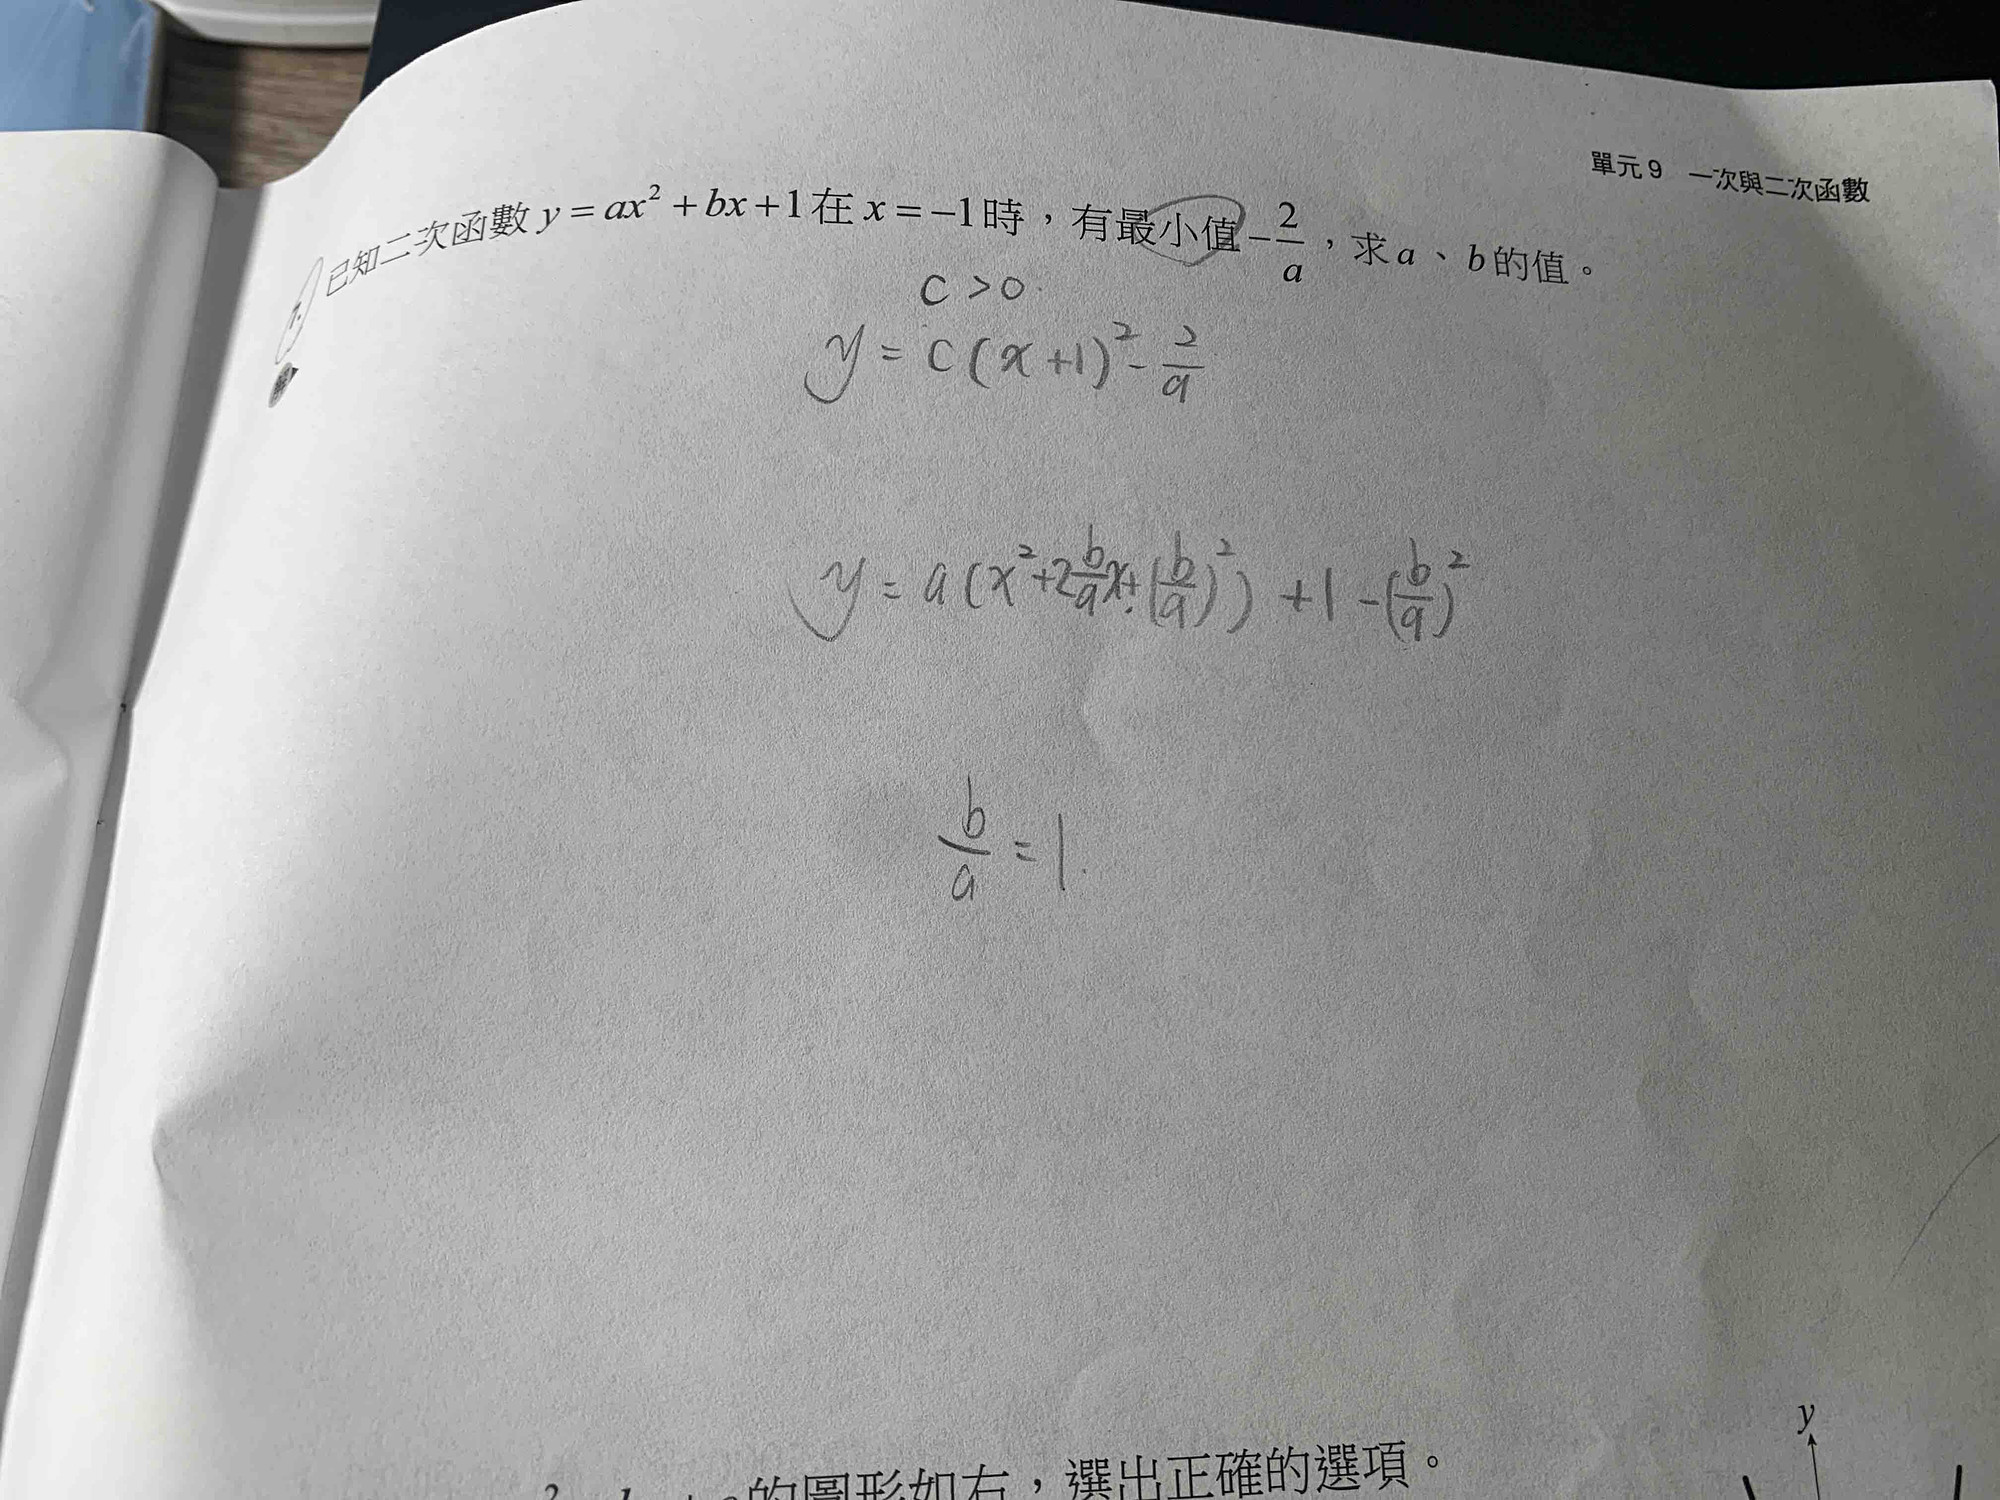 單元 9 一次與二次函數
7. 已知二次函數 y = ax² + bx + 1 在 x = −1 時，有最小值 −2/a，求 a、b 的值。
c > 0
y = c(x+1)² − 2/a
y = a(x² + 2 b/a x + (b/a)²) + 1 − (b/a)²
b/a = 1.
的圖形如右，選出正確的選項。
y